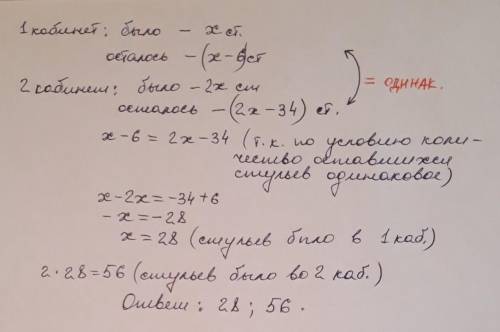 1 кабинет: было – x ст.
осталось – (x-6)ст
2 кабинет: было – 2x ст
осталось – (2x-34) ст.
= ОДИНАК.
x-6 = 2x-34 (т.к. по условию коли-
чество оставшихся
стульев одинаковое)
x-2x=-34+6
-x=-28
x=28 (стульев было в 1 каб.)
2·28=56 (стульев было во 2 каб.)
Ответ: 28; 56.